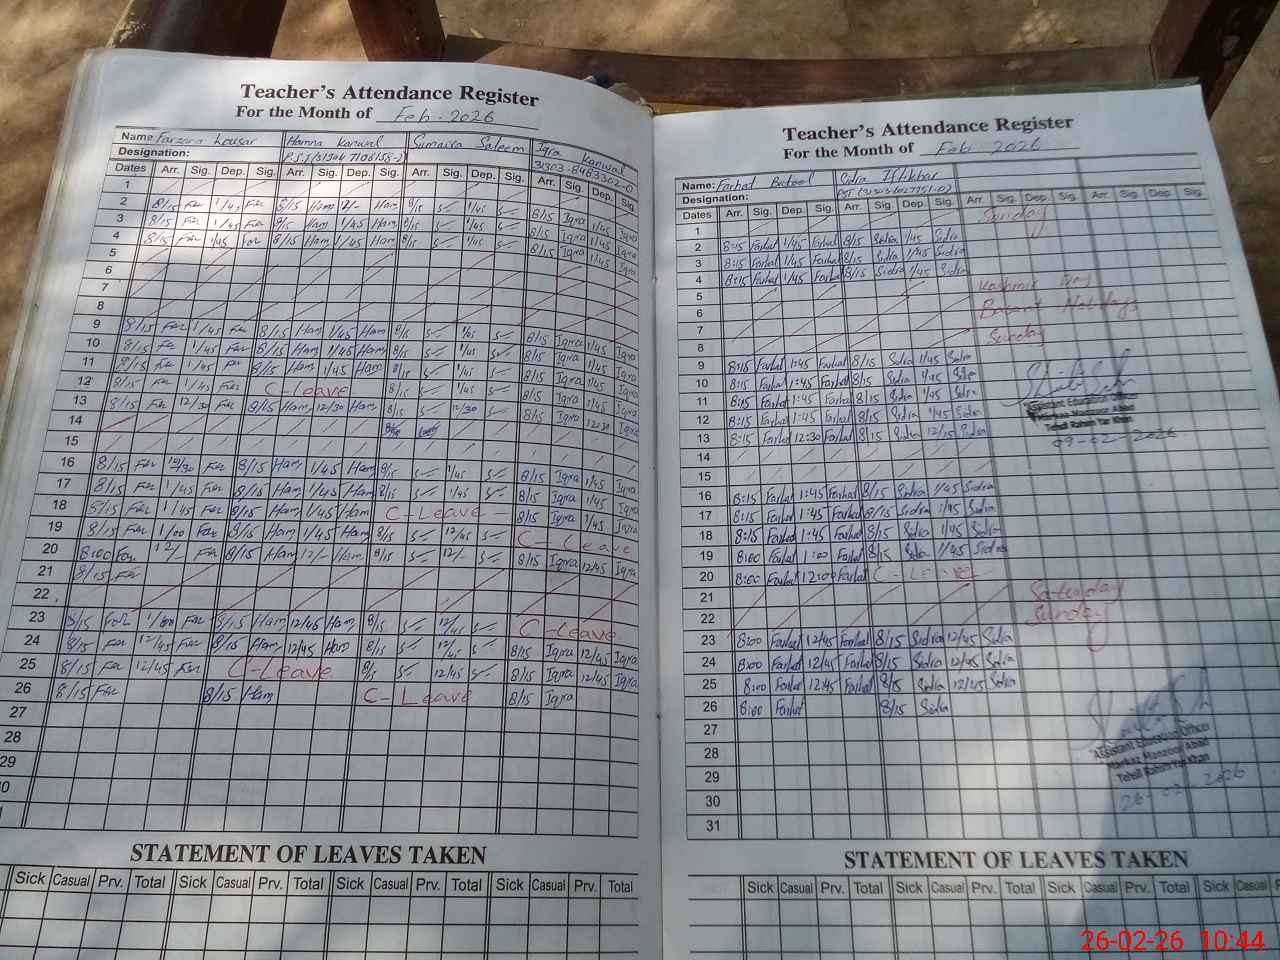 Teacher's Attendance Register
For the Month of Feb. 2026
Name Farzana Kousar Hamna Kanwal Sumaira Saleem Iqra Kanwal
Designation:
Dates Arr. Sig. Dep. Sig. Arr. Sig. Dep. Sig. Arr. Sig. Dep. Sig. Arr. Sig. Dep. Sig.
1
2 8/15 Far 1/45 Far 8/15 Ham Ham 8/15 1/45 8/15 Iqra 1/45 Iqra
3 8/15 Far 1/45 Far 8/15 Ham 1/45 Ham 8/15 1/45 8/15 Iqra 1/45 Iqra
4 8/15 Far 1/45 Far 8/15 Ham 1/45 Ham 8/15 1/45 8/15 Iqra 1/45 Iqra
5
6
7
8
9 8/15 Far 1/45 Far 8/15 Ham 1/45 Ham 8/15 1/45 8/15 Iqra 1/45 Iqra
10 8/15 Far 1/45 Far 8/15 Ham 1/45 Ham 8/15 1/45 8/15 Iqra 1/45 Iqra
11 8/15 Far 1/45 Far 8/15 Ham 1/45 Ham 8/15 1/45 8/15 Iqra 1/45 Iqra
12 8/15 Far 1/45 Far C-Leave 8/15 1/45 8/15 Iqra 1/45 Iqra
13 8/15 Far 12/30 Far 8/15 Ham 12/30 Ham 8/15 12/30 8/15 Iqra 12 30 Iqra
14
15
16 8/15 Far 12/30 Far 8/15 Ham 1/45 Ham 8/15 1/45 8/15 Iqra 1/45 Iqra
17 8/15 Far 1/45 Far 8/15 Ham 1/45 Ham 8/15 1/45 8/15 Iqra 1/45 Iqra
18 8/15 Far 1/45 Far 8/15 Ham 1/45 Ham C-Leave 8/15 Iqra 1/45 Iqra
19 8/15 Far 1/00 Far 8/15 Ham 1/45 Ham 8/15 12/45 C-Leave
20 8:00 Far 12/- Far 8/15 Ham 12/- Ham 8/15 12/- 8/15 Iqra 12/45 Iqra
21 8/15 Far
22
23 8/15 Far 1/00 Far 8/15 Ham 12/45 Ham 8/15 12/45 C-Leave
24 8/15 Far 12/45 Far 8/15 Ham 12/45 Ham 8/15 12/45 8/15 Iqra 12/45 Iqra
25 8/15 Far 12/45 Far C-Leave 8/15 12/45 8/15 Iqra 12/45 Iqra
26 8/15 Far 8/15 Ham C-Leave 8/15 Iqra
27
28
29
30
STATEMENT OF LEAVES TAKEN
Sick Casual Prv. Total Sick Casual Prv. Total Sick Casual Prv. Total Sick Casual Prv. Total
Teacher's Attendance Register
For the Month of Feb 2026
Name: Farhat Batool Sidra Iftikhar
Designation:
Dates Arr. Sig. Dep. Sig. Arr. Sig. Dep. Sig. Arr. Sig. Dep. Sig. Arr. Sig. Dep. Sig.
1 Sunday
2 8:15 Farhat 1/45 Farhat 8/15 Sidra 1/45 Sidra
3 8:15 Farhat 1/45 Farhat 8/15 Sidra 1/45 Sidra
4 8:15 Farhat 1/45 Farhat 8/15 Sidra 1/45 Sidra
5 Kashmir Day
6 Basant Holidays
7
8 Sunday
9 8:15 Farhat 1:45 Farhat 8/15 Sidra 1/45 Sidra
10 8:15 Farhat 1:45 Farhat 8/15 Sidra 1/45 Sidra
11 8:15 Farhat 1:45 Farhat 8/15 Sidra 1/45 Sidra
12 8:15 Farhat 1:45 Farhat 8/15 Sidra 1/45 Sidra
13 8:15 Farhat 12:30 Farhat 8/15 Sidra 12/15 Sidra
Assistant Education Officer
Markaz Manzoor Abad
Tehsil Rahim Yar Khan
09-02-2026
14
15
16 8:15 Farhat 1:45 Farhat 8/15 Sidra 1/45 Sidra
17 8:15 Farhat 1:45 Farhat 8/15 Sidra 1/45 Sidra
18 8:15 Farhat 1:45 Farhat 8/15 Sidra 1/45 Sidra
19 8:00 Farhat 1:00 Farhat 8/15 Sidra 1/45 Sidra
20 8:00 Farhat 12:00 Farhat C-Leave
21 Saturday
22 Sunday
23 8:00 Farhat 12/45 Farhat 8/15 Sidra 12/45 Sidra
24 8:00 Farhat 12/45 Farhat 8/15 Sidra 12/45 Sidra
25 8:00 Farhat 12:45 Farhat 8/15 Sidra 12/45 Sidra
26 8:00 Farhat 8/15 Sidra
27
28
29
30
31
Assistant Education Officer
Markaz Manzoor Abad
Tehsil Rahim Yar Khan
26-02-2026
STATEMENT OF LEAVES TAKEN
Sick Casual Prv. Total Sick Casual Prv. Total Sick Casual Prv. Total Sick Casual
26-02-26 10:44